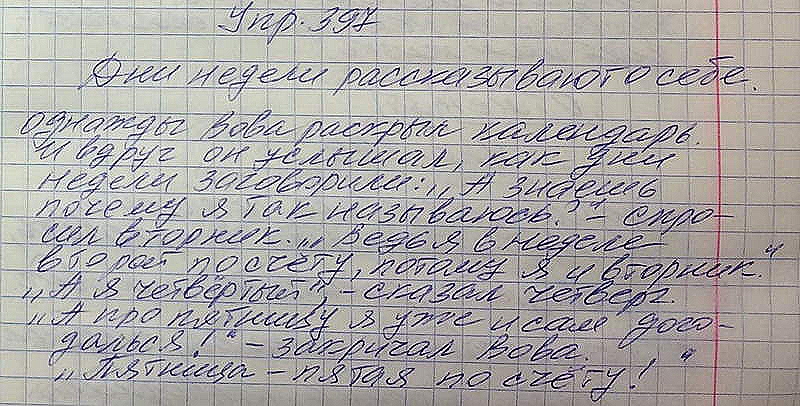 Упр. 397
Дни недели рассказывают о себе.
Однажды Вова раскрыл календарь.
И вдруг он услышал, как дни
недели заговорили: „А знаешь
почему я так называюсь?" - спро-
сил вторник. „Ведь я в неделе
второй по счёту, потому я и вторник."
„А я четвёртый", - сказал четверг.
„А про пятницу я уже и сам дога-
дался!" - закричал Вова.
„Пятница - пятая по счёту!"